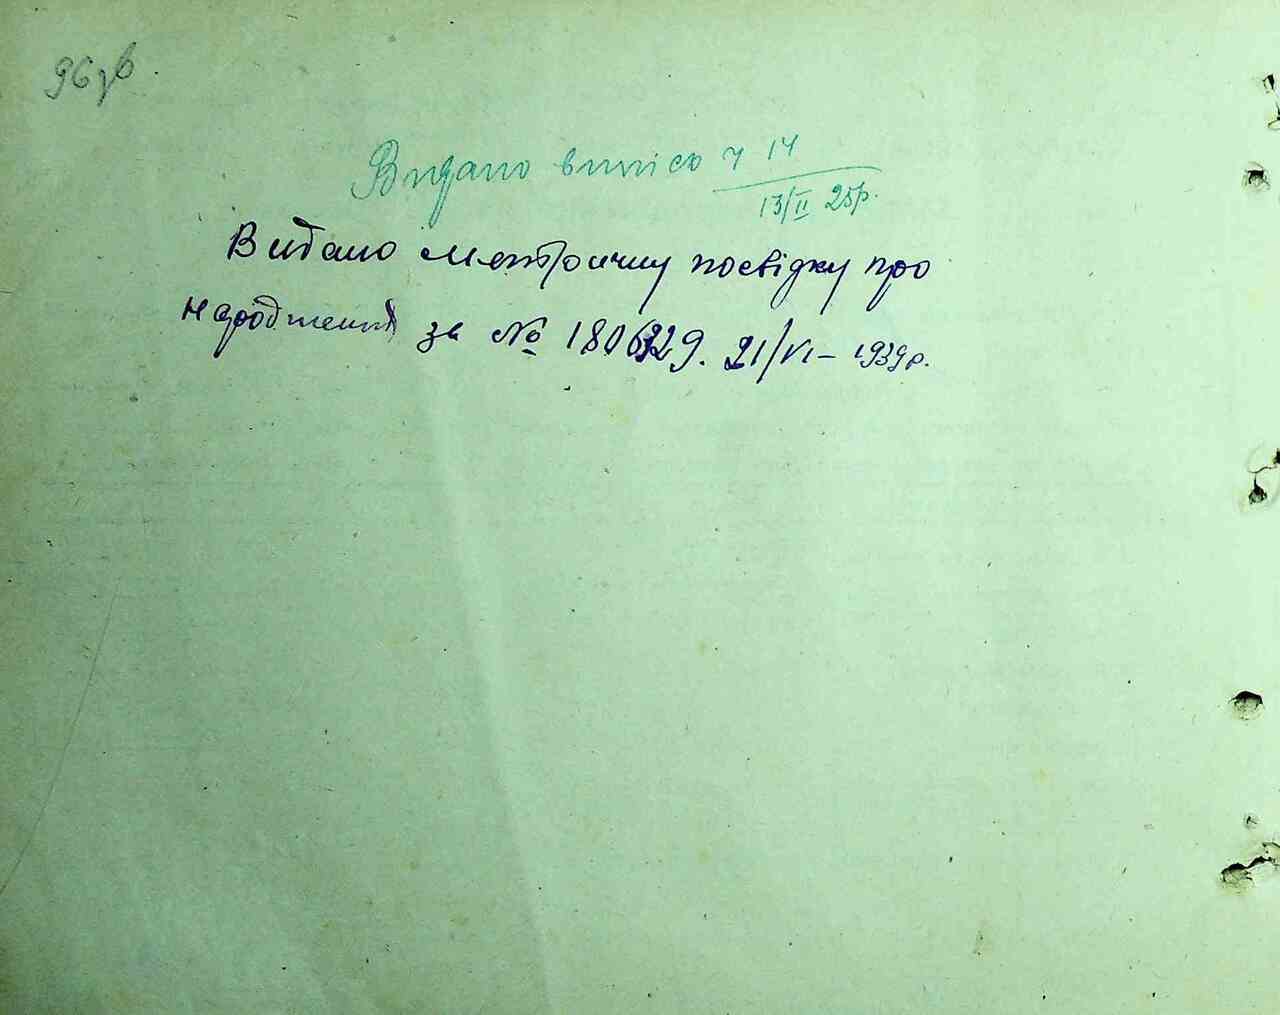 96зв.
Видано випісь ч 14
13/II 25р.
Видано метричну посвідку про
народження за № 180629. 21/VI – 1939р.